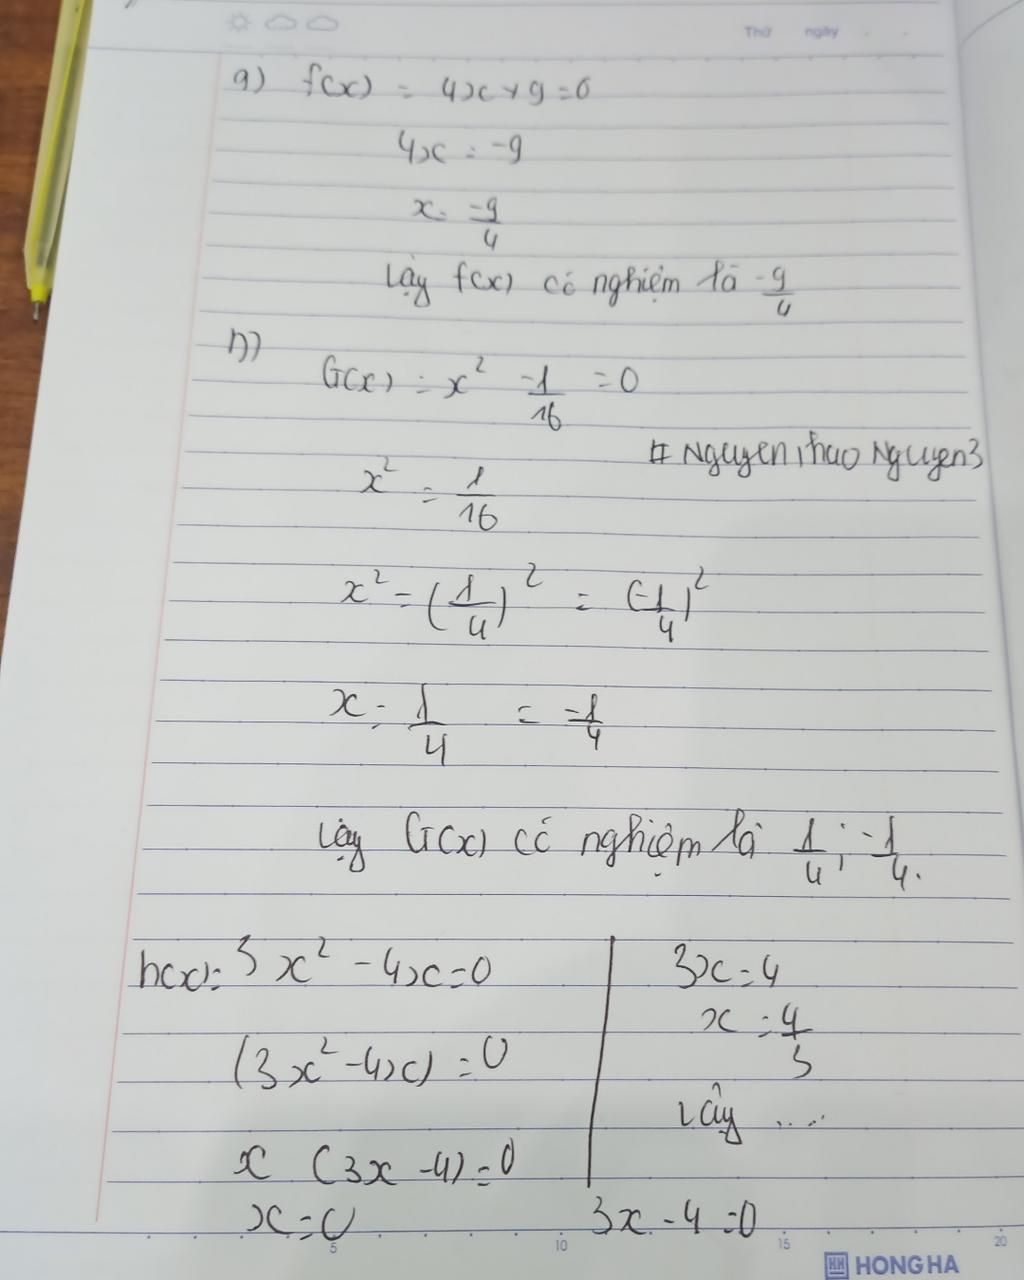 Thứ ngày
a) f(x) = 4x + 9 = 0
4x = -9
x = -9/4
Vậy f(x) có nghiệm là -9/4
b)
G(x) = x² - 1/16 = 0
# NguyenThaoNguyen3
x² = 1/16
x² = (1/4)² = (-1/4)²
x = 1/4 = -1/4
Vậy G(x) có nghiệm là 1/4 ; -1/4.
h(x) = 3x² - 4x = 0
(3x² - 4x) = 0
x (3x - 4) = 0
x = 0
3x - 4 = 0
3x = 4
x = 4/3
Vậy ....
5 10 15 20
HONG HA